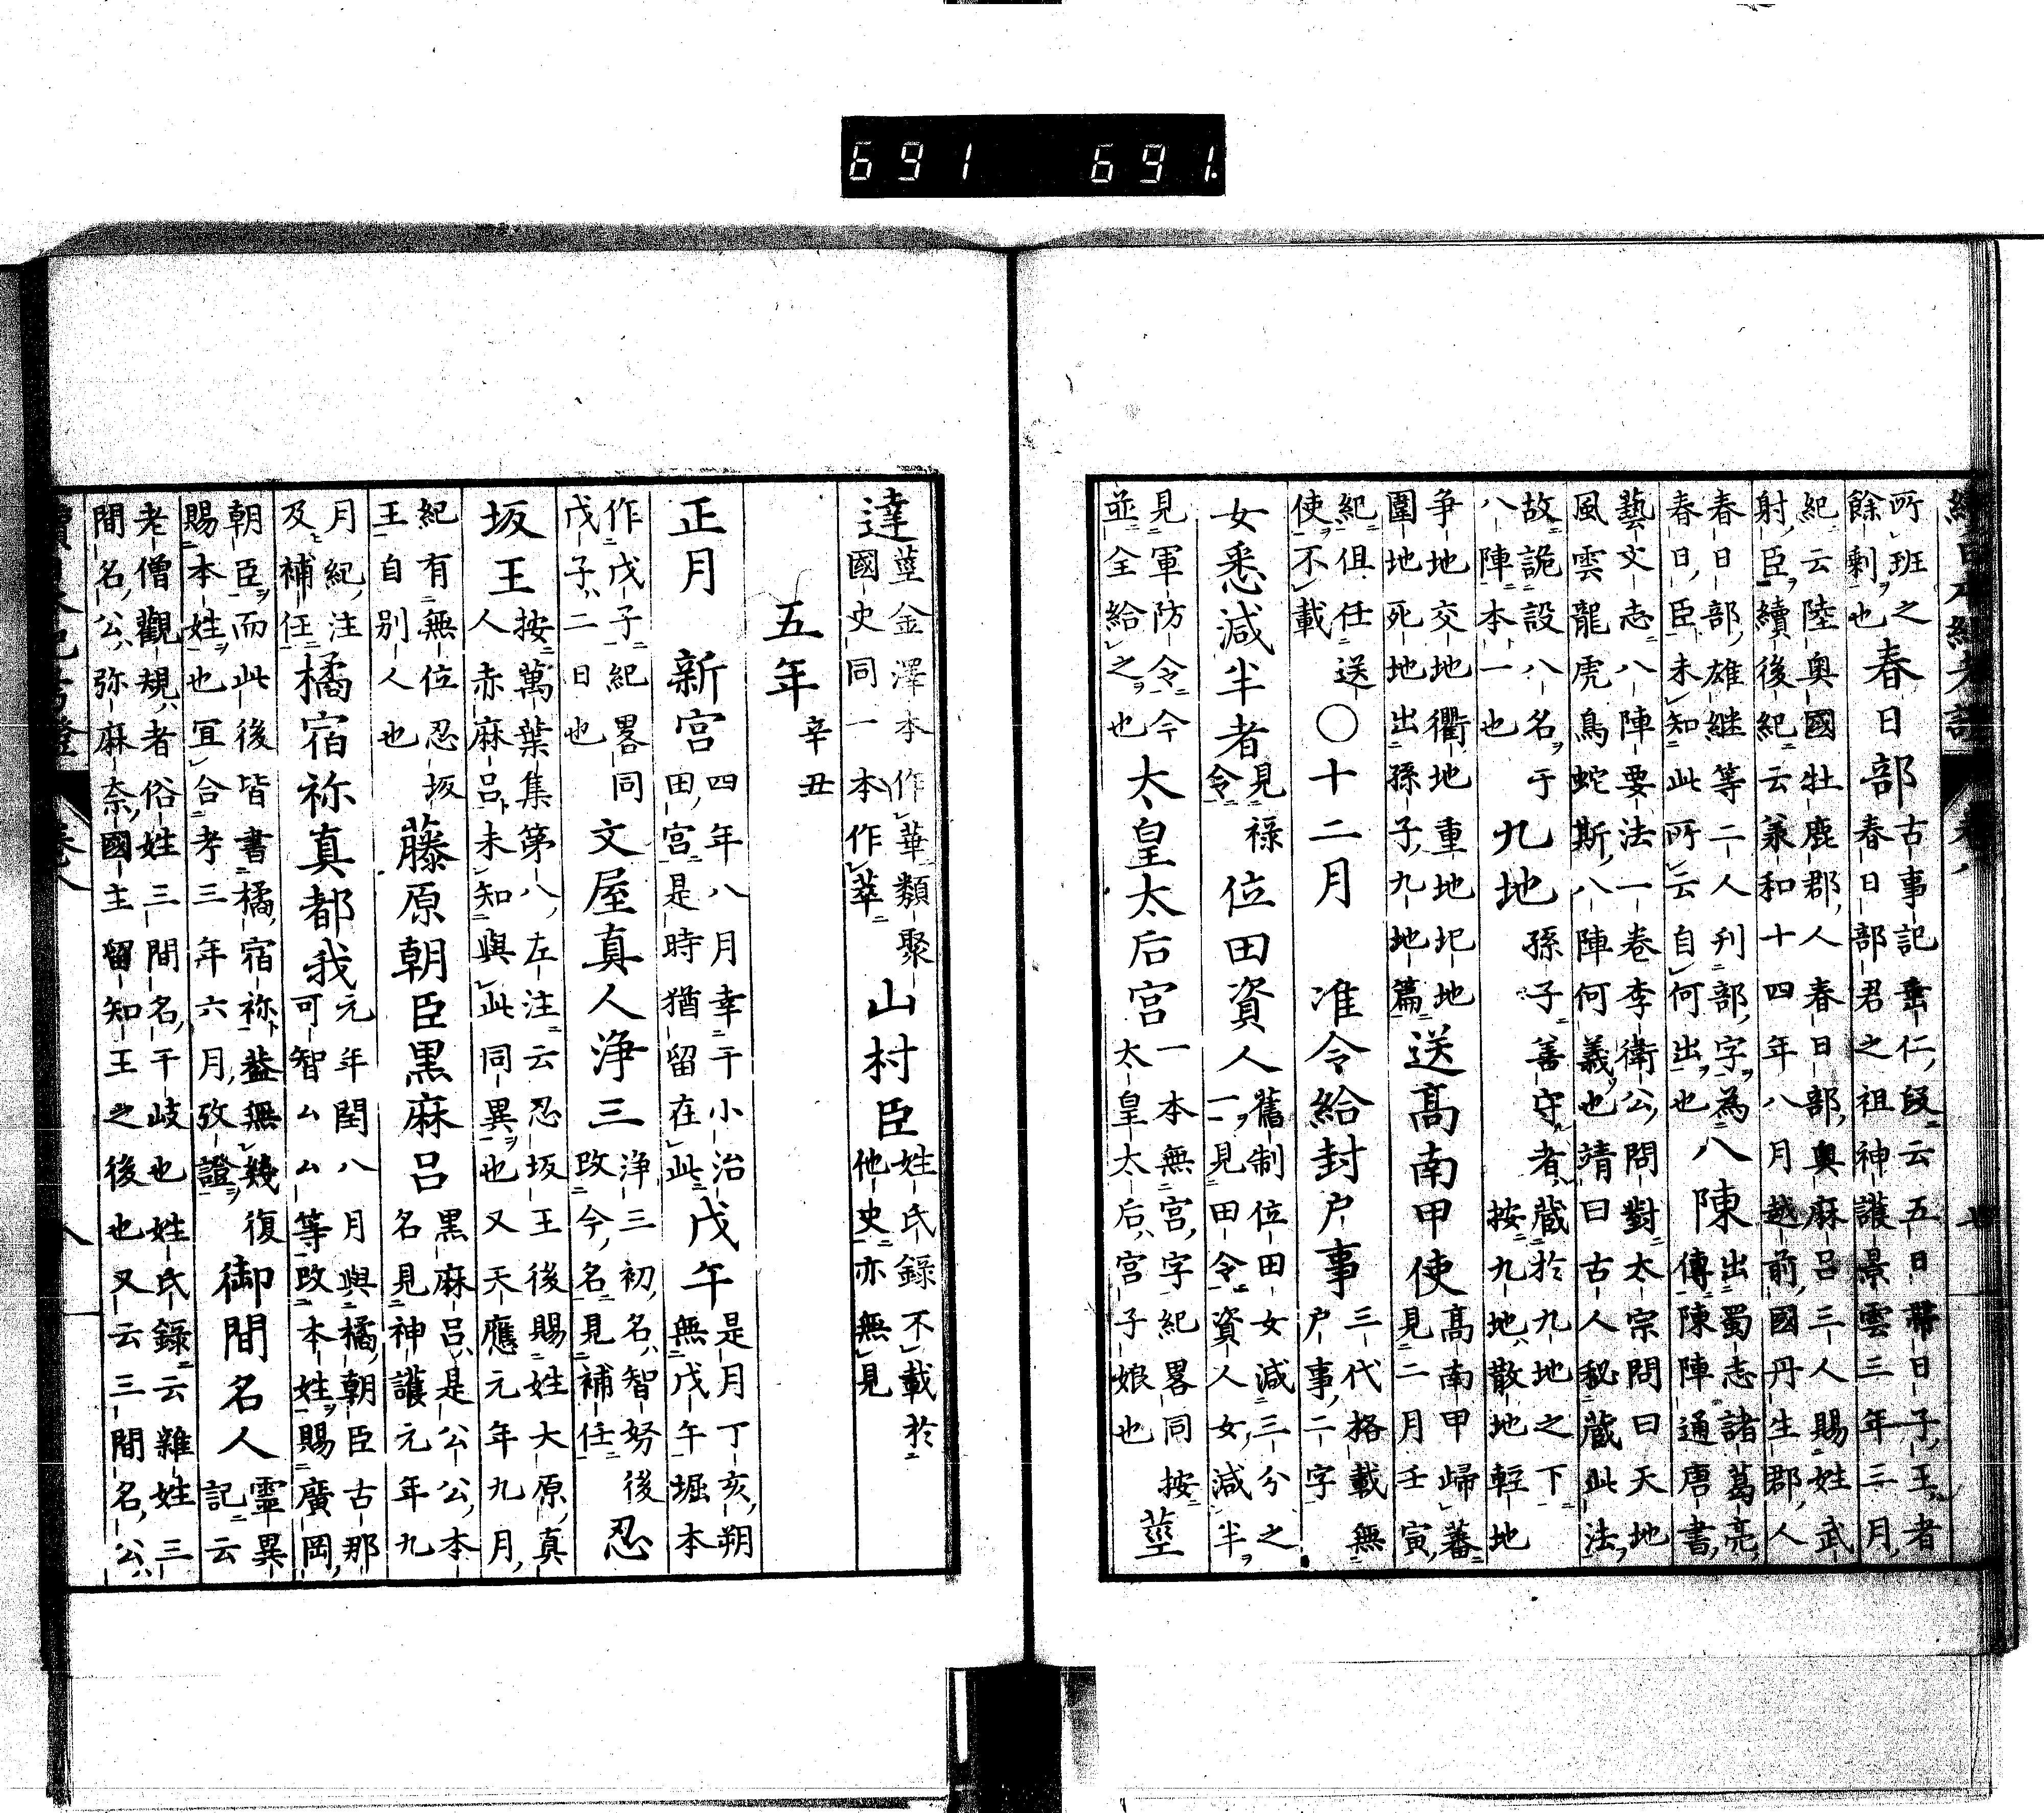 691 691.
續日本紀考證 卷八
所班之餘剩也 春日部 古事記垂仁段云五日帶日子王者春日部君之祖神護景雲三年三月
紀云陸奥國牡鹿郡人春日部奥麻呂三人賜姓武射臣續後紀云承和十四年八月越前國丹生郡人
春日部雄継等二人刋部字為春日臣未知此所云自何出也 八陳 出蜀志諸葛亮傳陳陣通唐書
藝文志八陣要法一卷李衛公問對太宗問曰天地風雲龍虎鳥蛇斯八陣何義也靖曰古人秘藏此法
故詭設八名于八陣本一也 九地 孫子善守者藏於九地之下按九地散地輕地
争地交地衢地重地圯地圍地死地出孫子九地篇 送高南甲使 高南甲歸蕃見二月壬寅
紀俱任送使不載 〇十二月 准令給封戸事 三代格載無戸事二字
女悉減半者 見禄令 位田資人 舊制位田女減三分之一見田令資人女減半
見軍防令今並全給之也 太皇太后宮 一本無宮字紀畧同按太皇太后宮子娘也 莖
達 莖金澤本作華類聚國史同一本作莘 山村臣 姓氏録不載於他史亦無見
五年 辛丑
正月 新宮 四年八月幸于小治田宮是時猶留在此 戊午 是月丁亥朔無戊午堀本
作戊子紀畧同戊子二日也 文屋真人浄三 浄三初名智努後改今名見補任 忍
坂王 按萬葉集第八左注云忍坂王後賜姓大原真人赤麻呂未知與此同異也又天應元年九月
紀有無位忍坂王自别人也 藤原朝臣黒麻呂 黒麻呂是公公本名見神護元年九
月紀注及補任 橘宿祢真都我 元年閏八月與橘朝臣古那可智ムム等改本姓賜廣岡
朝臣而此後皆書橘宿祢葢無幾復賜本姓也宜合考三年六月攷證 御間名人 霊異記云
老僧觀規者俗姓三間名干岐也姓氏録云雜姓三間名公弥麻奈國主留知王之後也又云三間名公
續日本紀考證 卷八 八